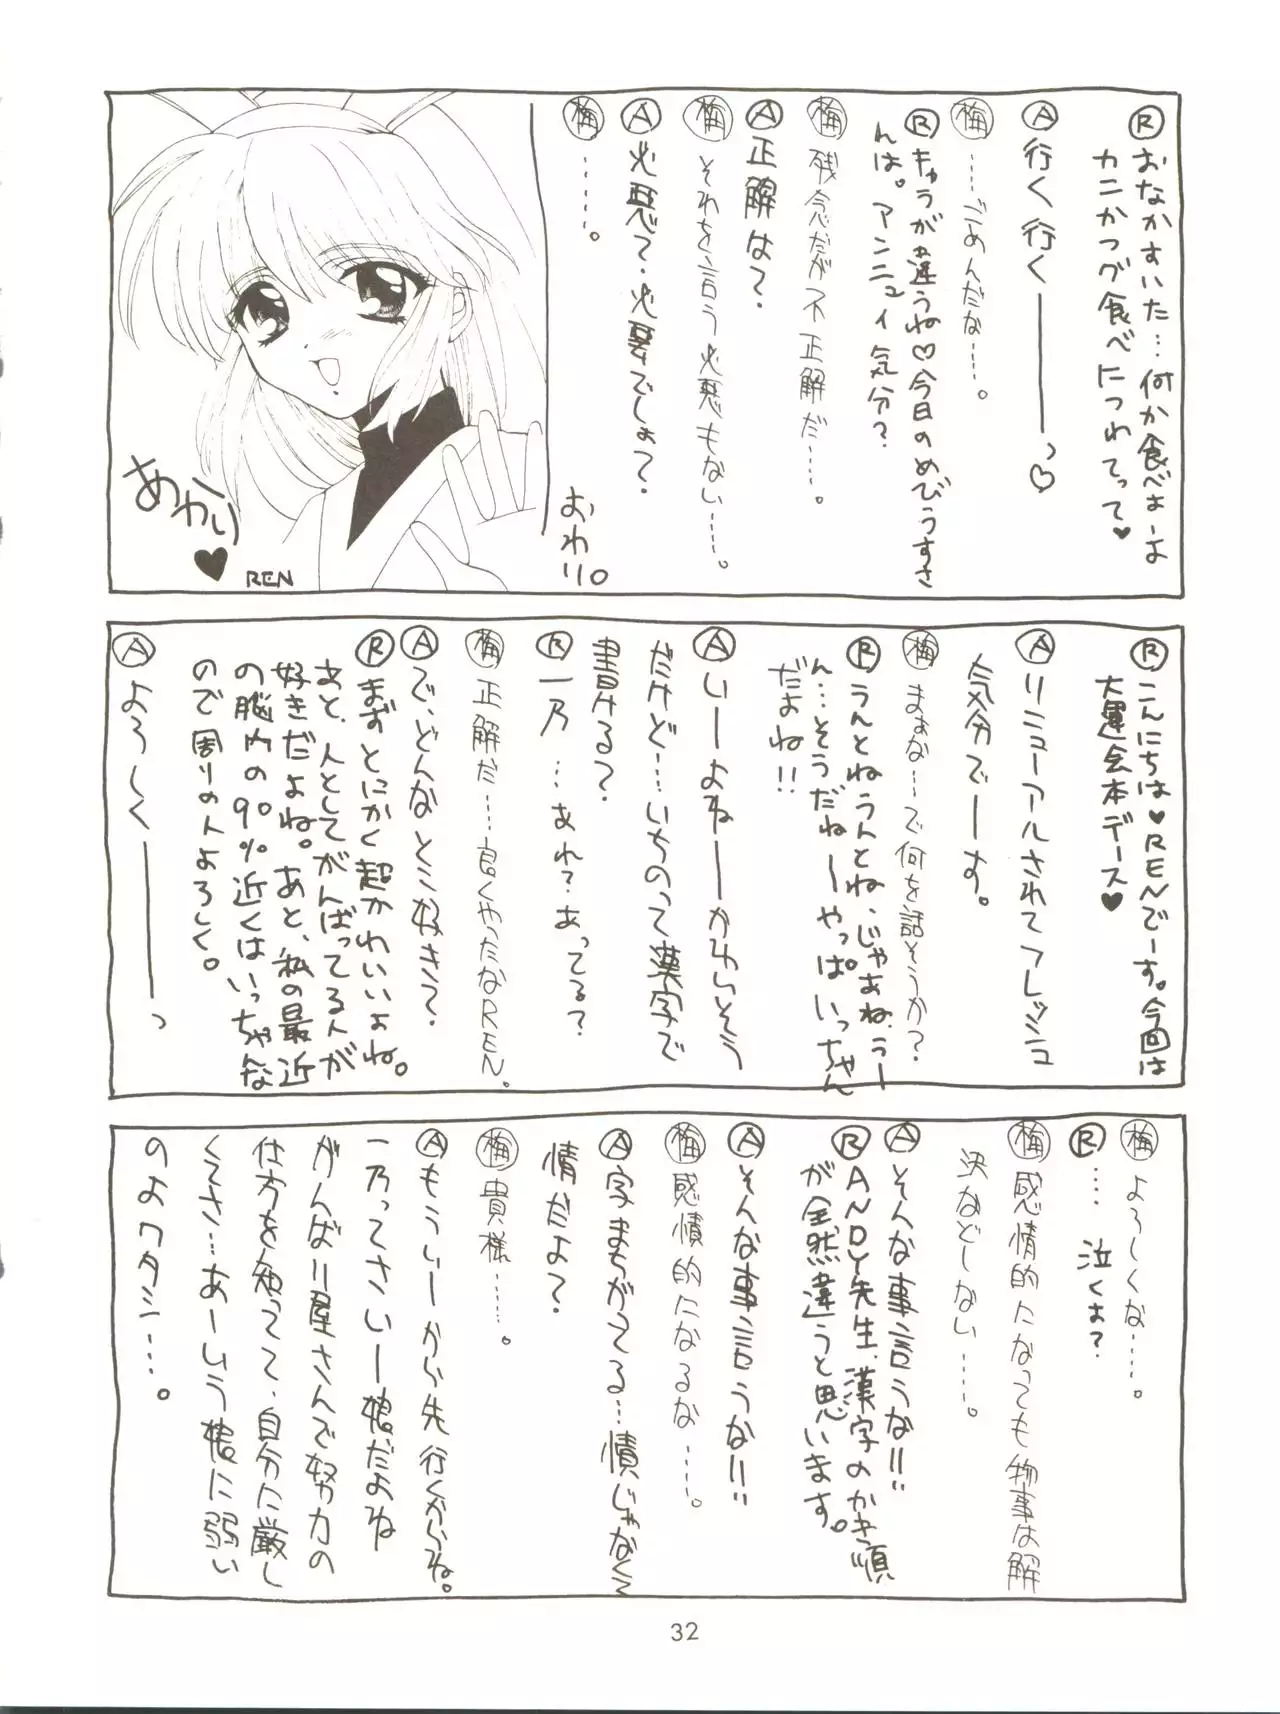 Ⓡおなかすいた…何か食べよーよ
カニかつグ食べにつれてって♥
Ⓐ行く行く────っ♡
㊙梅…ごめんだな……。
Ⓡキゅうがね違うね♡今日のめびうすさ
んは。アンニュイ気分?
梅 残念だが不正解だ……。
Ⓐ正解は?
梅 それを言う必要もない……。
Ⓐ必悪て・必要でしょ?
梅 ……。
おわり。
あかり♥
REN
Ⓡこんにちは♥RENでーす。今回は
大運会本デース♥
Ⓐリニューアルされてフレッシュ
気分でーす。
梅 まぁな…で何を話そうか?
Ⓡうんとねうんとね、じゃあね、うー
ん…そうだねーやっぱいっちゃん
だよね!!
Ⓐいーよねーーかわいそう
だけど…いちのって漢字で
書ける?
Ⓡ一乃…あれ?あってる?
梅 正解だ……良くやったなREN。
Ⓐで、どんなとこ好き?
Ⓡまずとにかく超かわいいよね。
あと、人としてがんばってる人が
好きだよね。あと、私の最近
の脳内の90%近くはいっちゃんな
ので周りの人よろしく。
Ⓐよろしく────っ
梅 よろしくな……。
Ⓡ…泣くよ?
梅 感情的になっても物事は解
決などしない……。
Ⓐそんな事言うな!!
ⓇANDY先生、漢字のかき順
が全然違うと思います。
Ⓐそんな事言うな!!
梅 感債的になるな……。
Ⓐ字まちがってる…債じゃなくて
情だよ?
梅 貴様……。
Ⓐもういーから先行くからね。
一乃ってさいー娘だよね
がんばり屋さんで努力の
仕方を知ってて、自分に厳し
くてさ…あーいう娘に弱い
のよワタシ……。
32